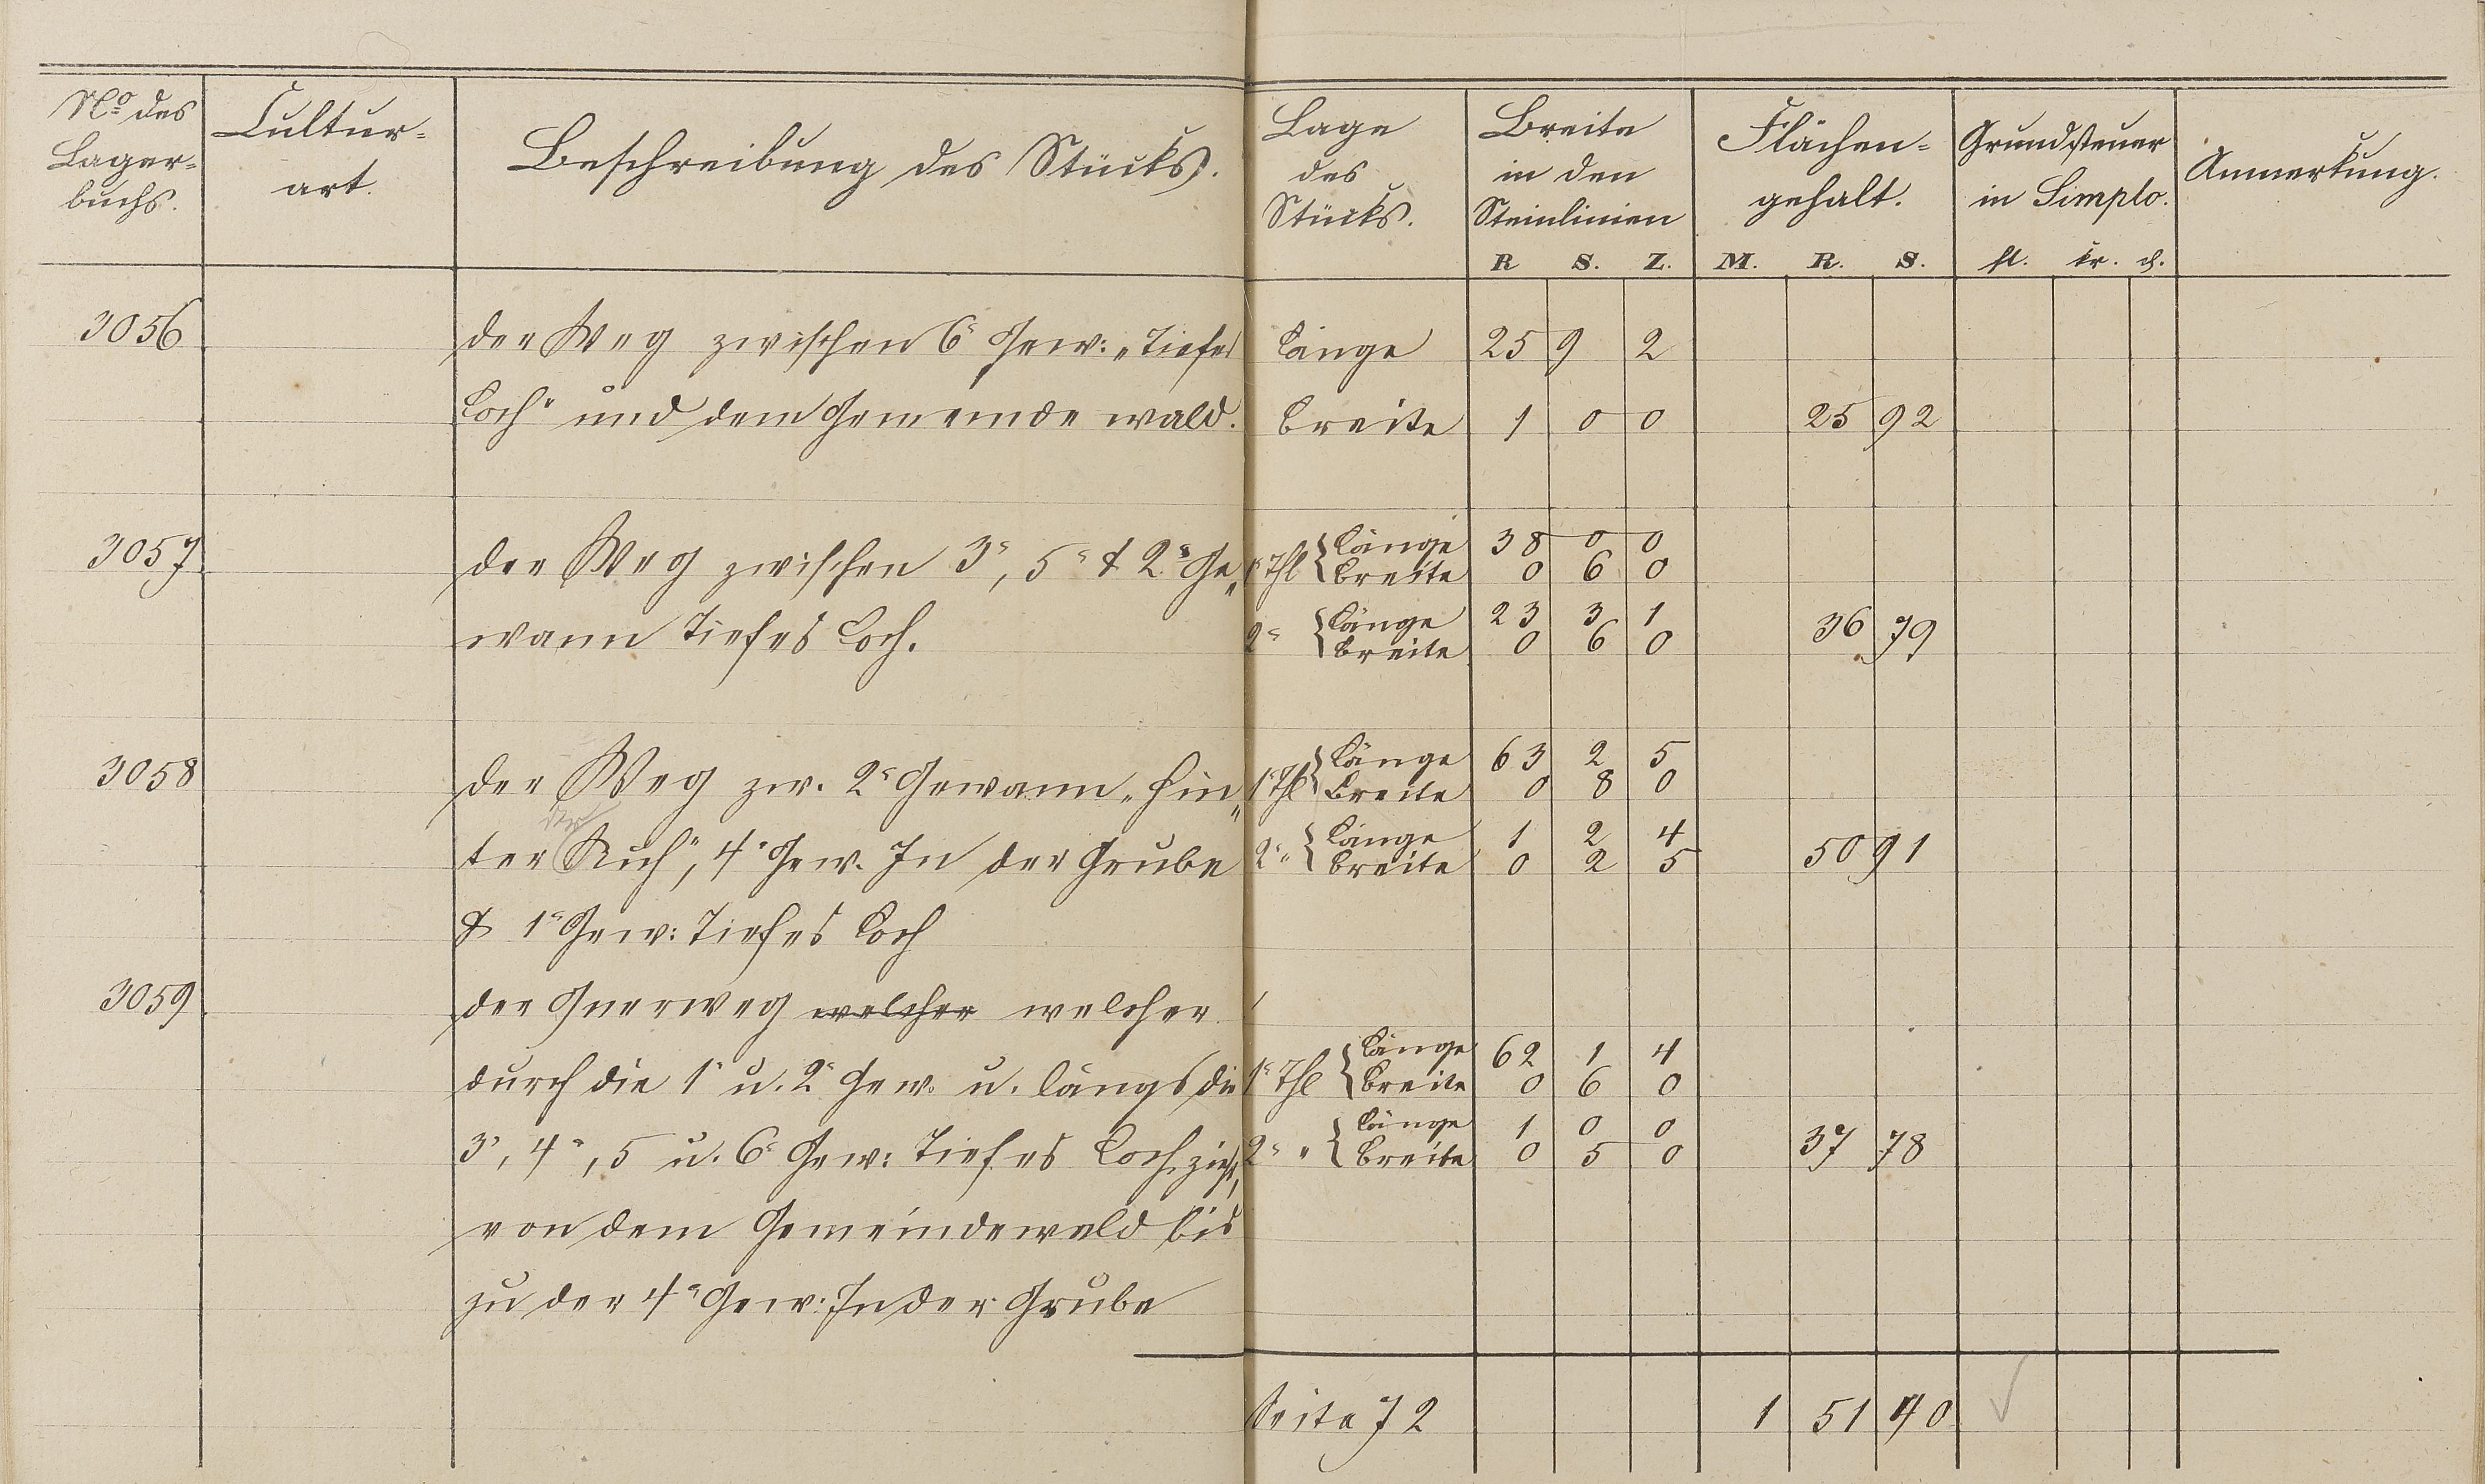 No des Lagerbuchs.
Culturart.
Beschreibung des Stücks.
Lage des Stücks.
Breite in den Steinlinien
Flächengehalt.
Grundsteuer in Simplo.
Anmerkung.
R S. Z. M. R. S. fl. kr. d.
3056 der Weg zwischen 6r Gew: „Tiefes Länge 25 9 2
Loch" und dem Gemeindewald. Breite 1 0 0 25 92
3057 der Weg zwischen 3r, 5r & 2r Ge„ 1r Thl Länge 38 0 0
Breite 0 6 0
wann Tiefes Loch. 2r Länge 23 3 1 36 79
Breite 0 6 0
3058 der Weg zw. 2r Gewann „Hin„ 1r Thl Länge 63 2 5
Breite 0 8 0
der
ter Ruh", 4r Gew. In der Grube 2r " Länge 1 2 4 50 91
Breite 0 2 5
& 1r Gew: Tiefes Loch
3059 der Querweg welcher welcher
durch die 1r u. 2r Gew. u. längs die 1r Thl Länge 62 1 4
Breite 0 6 0
3r, 4r, 5 u. 6r Gew: Tiefes Loch zieht, 2r " Länge 1 0 0 37 78
Breite 0 5 0
von dem Gemeindewald bis
zu der 4r Gew: In der Grube
Seite 72 1 51 40